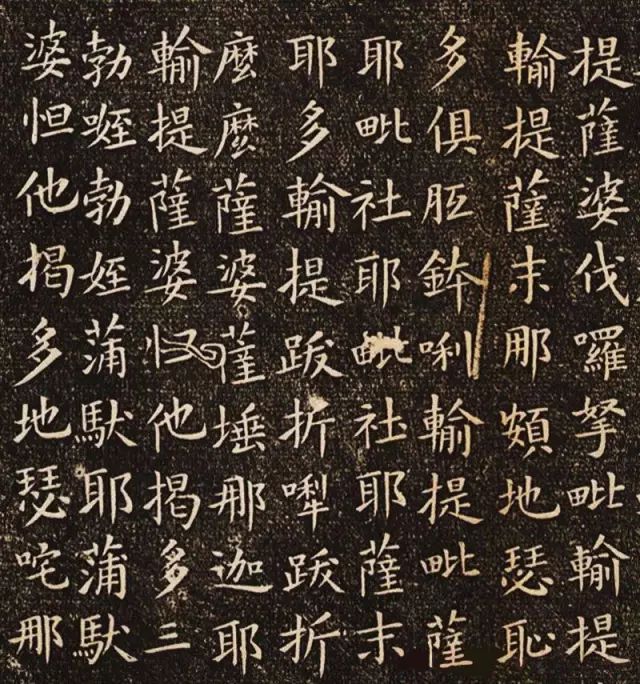 提薩婆伐囉拏毗輸提
輸提薩末那頞地瑟恥
多俱胝鉢唎輸提毗薩
耶毗社耶毗社耶薩末
耶多輸提跋折跋折
麼麼薩婆薩埵那迦耶
輸提薩婆他揭多三
勃勃姪蒲馱耶蒲馱
婆怛他揭多地瑟咤那